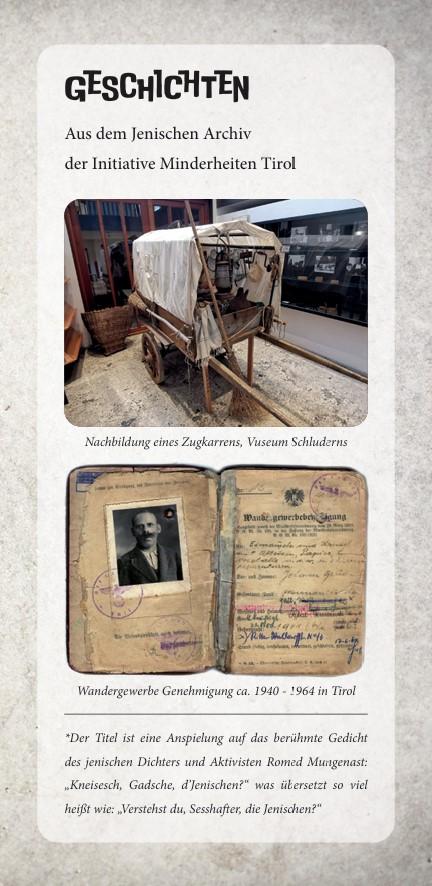 GESCHICHTEN
Aus dem Jenischen Archiv
der Initiative Minderheiten Tirol
Nachbildung eines Zugkarrens, Vuseum Schluderns
Wandergewerbe Genehmigung ca. 1940 - 1964 in Tirol
*Der Titel ist eine Anspielung auf das berühmte Gedicht
des jenischen Dichters und Aktivisten Romed Mungenast:
„Kneisesch, Gadsche, d’Jenischen?“ was übersetzt so viel
heißt wie: „Verstehst du, Sesshafter, die Jenischen?“